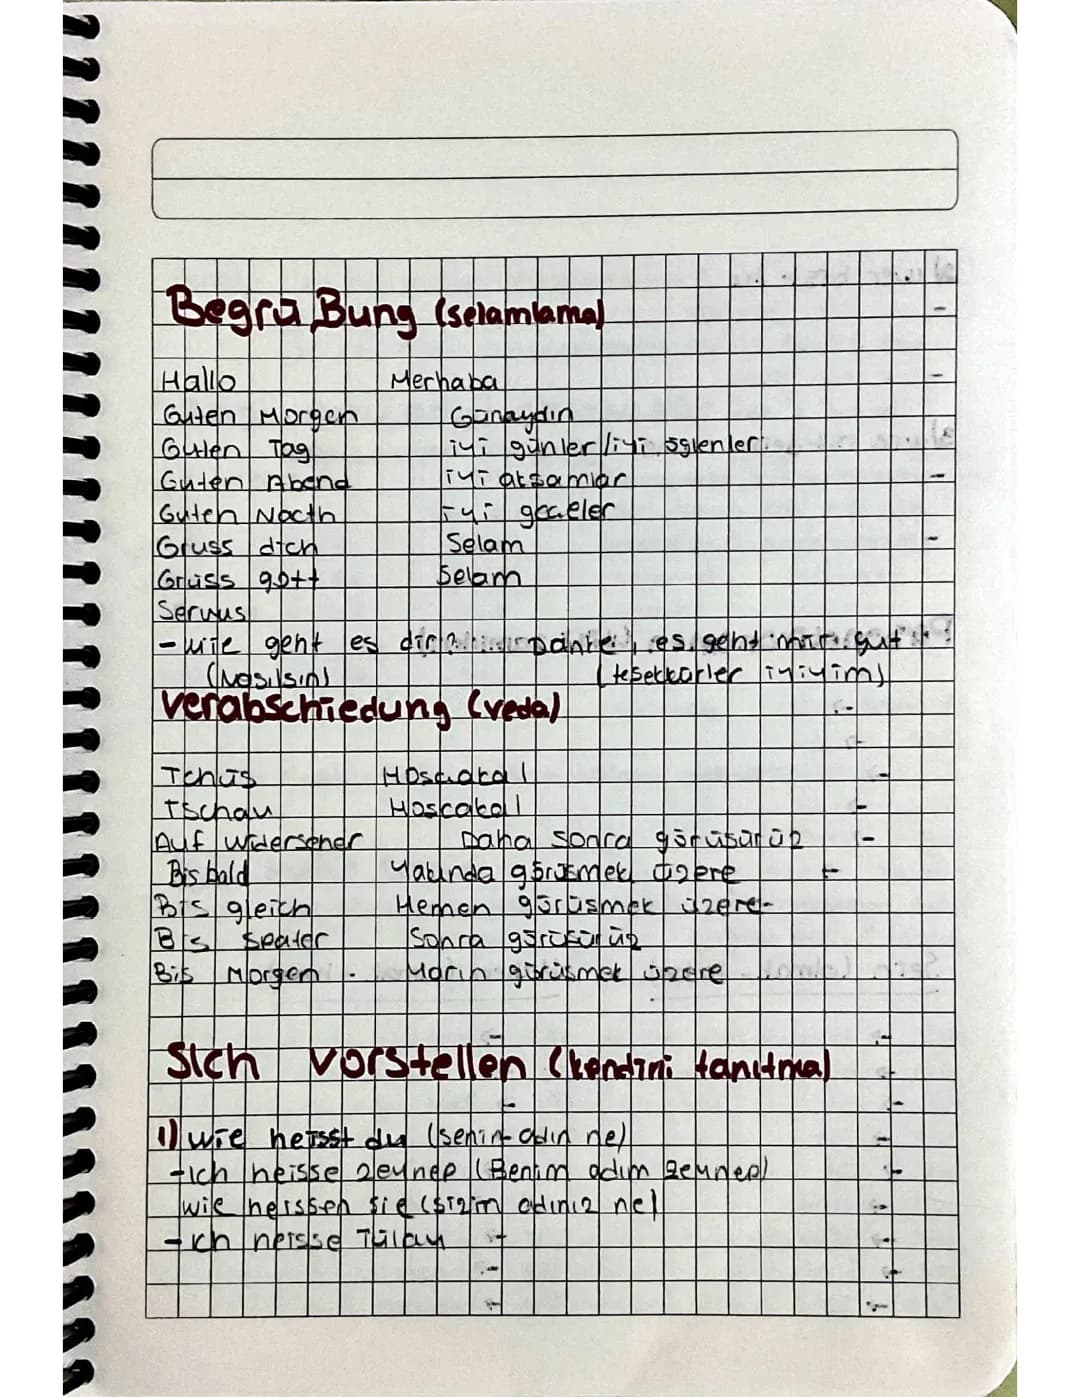 Begrü Bung (selamlama)
Hallo Merhaba
Guten Morgen Günaydın
Guten Tag iyi günler/iyi öglenler
Guten Abend iyi akşamlar
Guten Nacth iyi geceler
Gruss dich Selam
Grüss gott Selam
Servus
- wie geht es dir? Danke, es geht mir gut
(Nasılsın) (teşekkürler iyiyim)
verabschiedung (veda)
Tchüs Hoscakal
Tschau Hoscakal
Auf widersehen Daha sonra görüsürüz
Bis bald Yakında görüsmek üzere
Bis gleich Hemen görüsmek üzere
Bis Speater Sonra görüsürüz
Bis Morgen Yarın görüsmek üzere
Sich vorstellen (kendini tanıtma)
1) wie heisst du (senin adın ne)
-Ich heisse Zeynep (Benim adım Zeynep)
wie heissen sie (sizin adınız ne)
-ich heisse Tülay